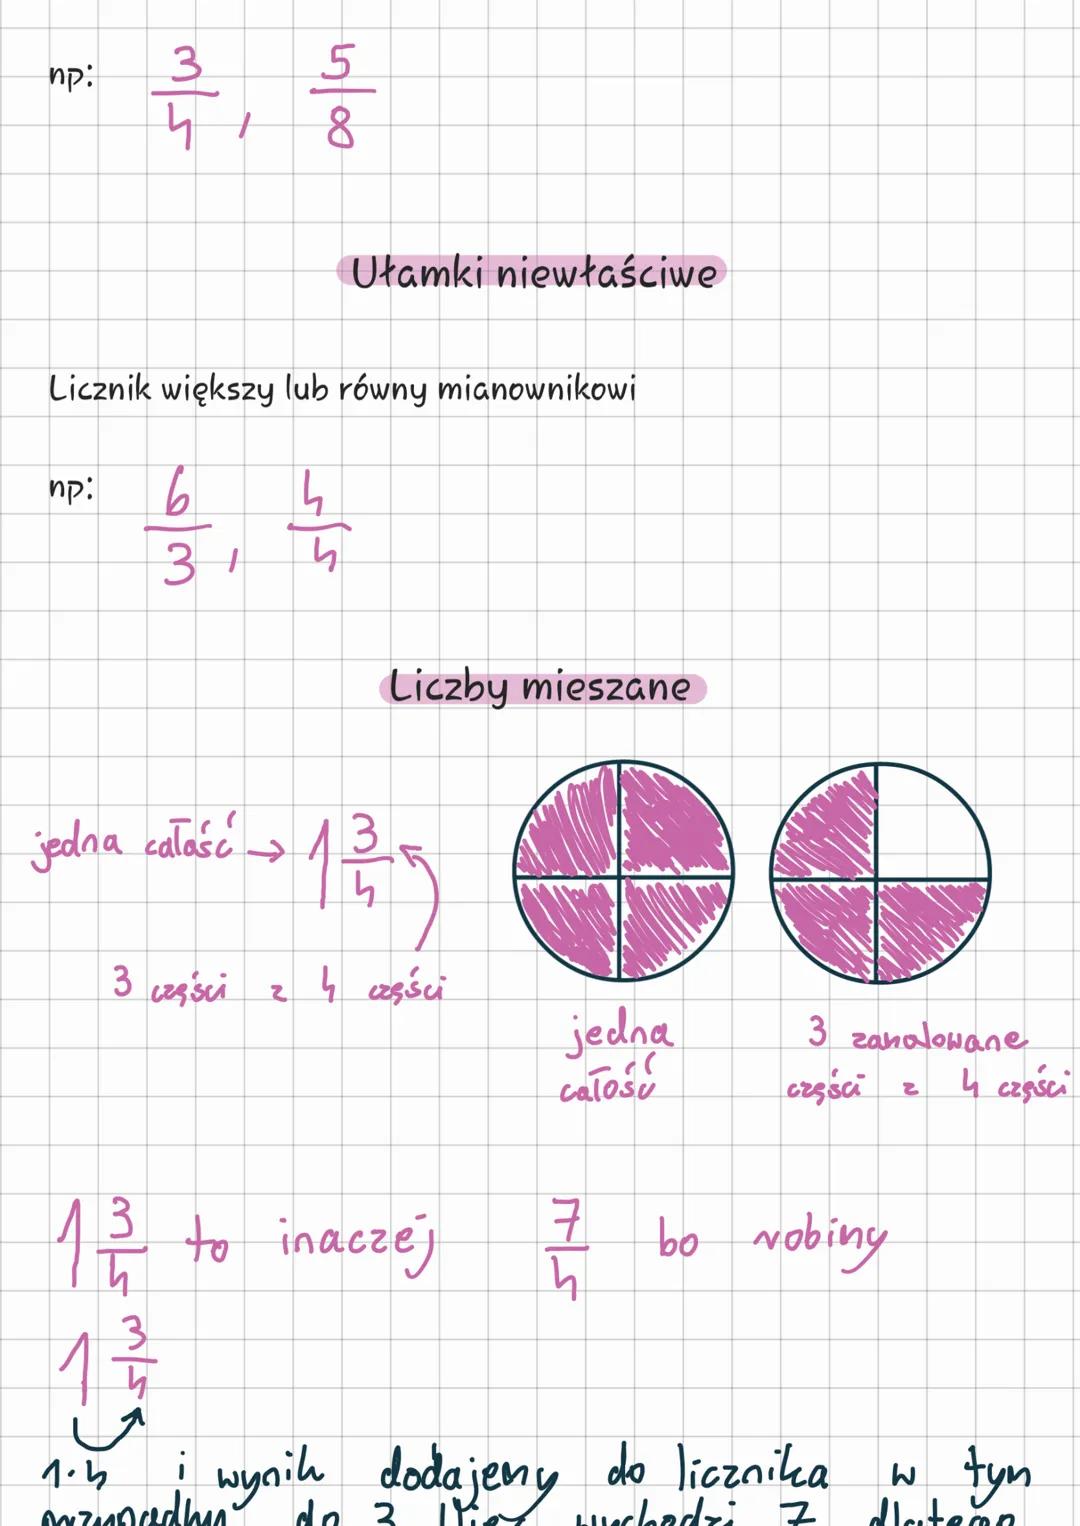 np: 3/4 , 5/8
Ułamki niewłaściwe
Licznik większy lub równy mianownikowi
np: 6/3 , 4/4
Liczby mieszane
jedna całość → 1 3/4
3 części z 4 części
jedna
całość
3 zamalowane
części z 4 części
1 3/4 to inaczej 7/4 bo robimy
1 3/4
1·4 i wynik dodajemy do licznika w tym
przypadku do 3 Więc wychodzi 7 dlatego